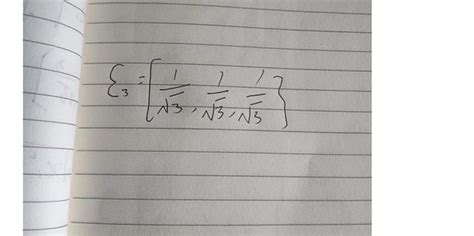 ξ₃ = [1/√3, 1/√3, 1/√3}